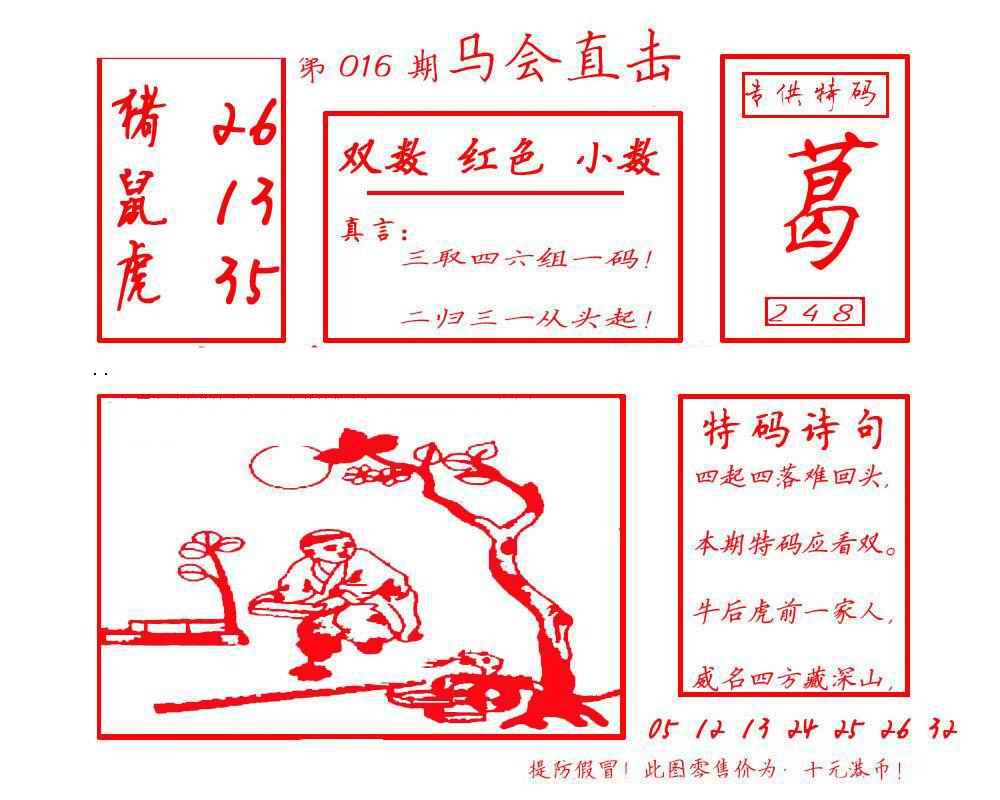 第 016 期 马会直击
猪 26
鼠 13
虎 35
双数 红色 小数
真言：
三取四六组一码！
二归三一从头起！
专供特码
葛
248
特码诗句
四起四落难回头，
本期特码应看双。
牛后虎前一家人，
威名四方藏深山，
05 12 13 24 25 26 32
提防假冒！此图零售价为·十元港币！